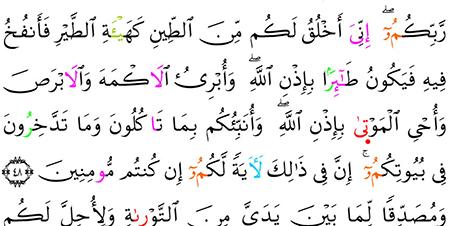 رَّبِّكُمُۥٓ ۖ إِنِّىَ أَخْلُقُ لَكُم مِّنَ ٱلطِّينِ كَهَيْـَٔةِ ٱلطَّيْرِ فَأَنفُخُ
فِيهِ فَيَكُونُ طَـٰٓئِرًۢا بِإِذْنِ ٱللَّهِ ۖ وَأُبْرِئُ ٱلَاكْمَهَ وَٱلَابْرَصَ
وَأُحْىِ ٱلْمَوْتٜىٰ بِإِذْنِ ٱللَّهِ ۖ وَأُنَبِّئُكُم بِمَا تَاكُلُونَ وَمَا تَدَّخِرُونَ
فِى بُيُوتِكُمُۥٓ ۚ إِنَّ فِى ذَٰلِكَ لَأَيَةً لَّكُمُۥٓ إِن كُنتُم مُّومِنِينَ ٤٨
وَمُصَدِّقًا لِّمَا بَيْنَ يَدَىَّ مِنَ ٱلتَّوْرَىٰةِ وَلِأُحِلَّ لَكُم